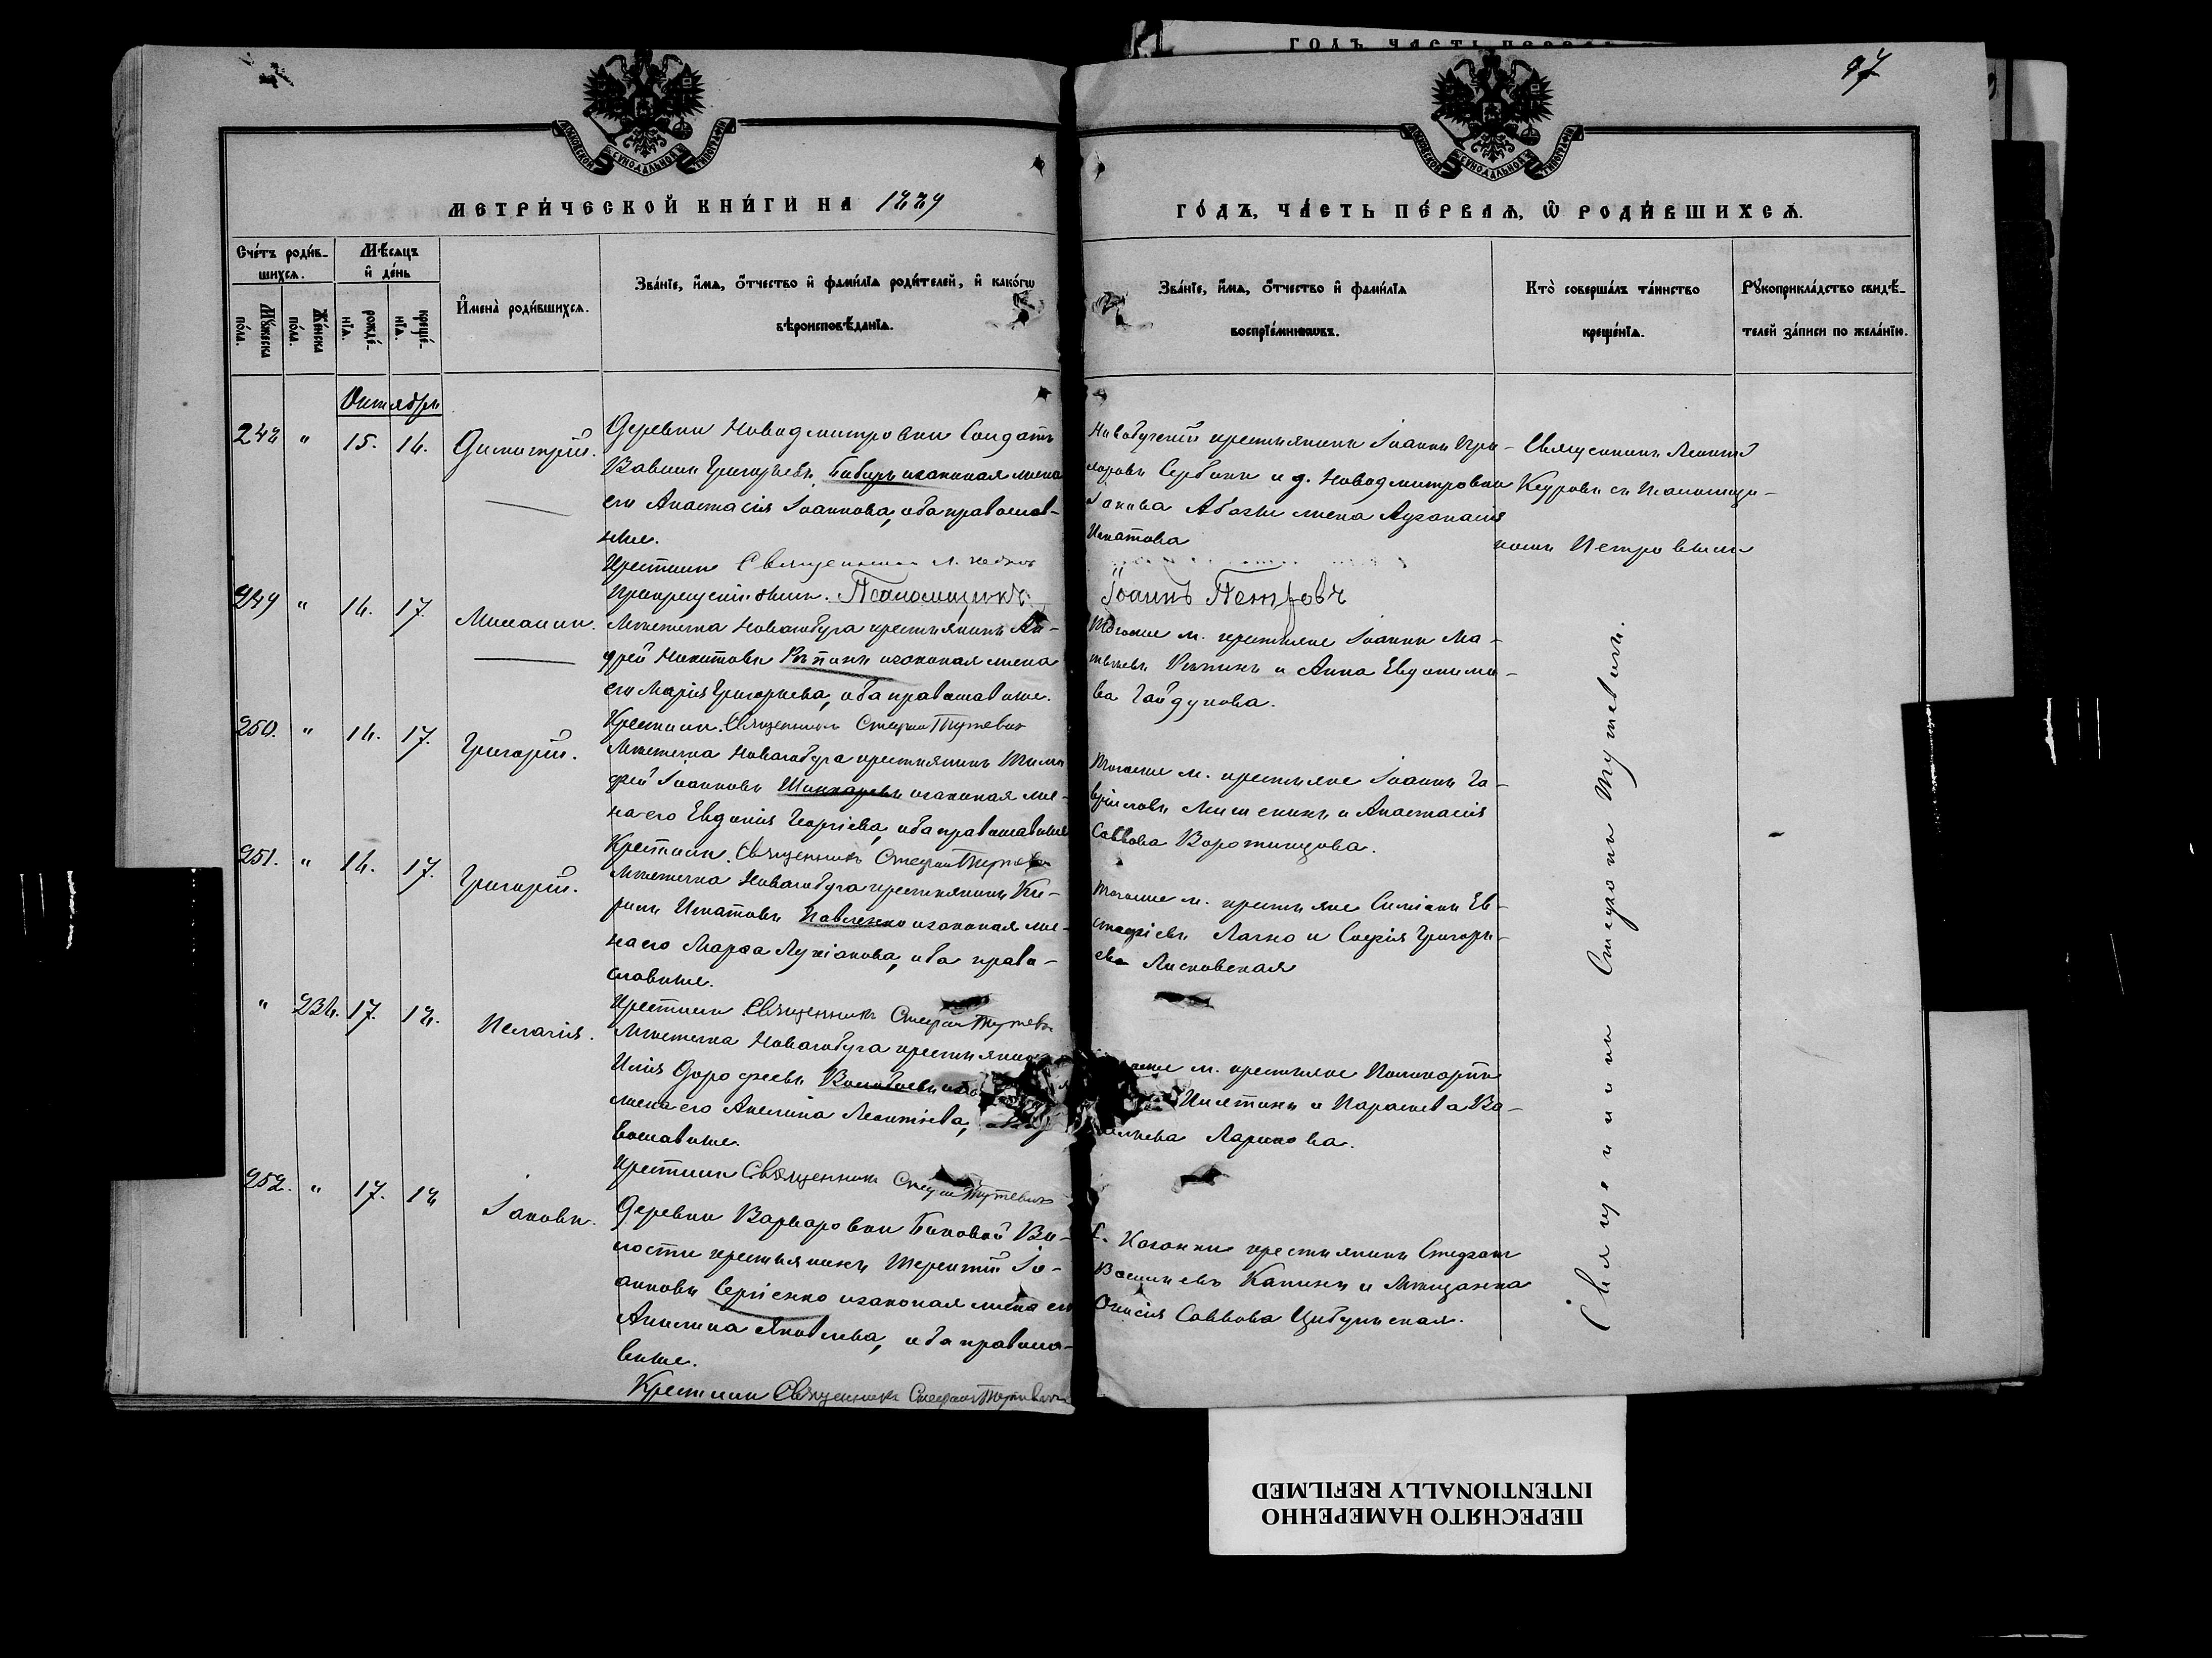 97
МЕТРИ́ЧЕСКОЙ КНИ́ГИ НА 1889
ГО́ДЪ, ЧА́СТЬ ПЕ́РВАѦ, Ѡ҆ РОДИ́ВШИХСѦ.
Сче́тъ роди́в-
шихсѧ.
Мѣ́сѧцъ
и҆ де́нь
Мꙋ́жеска по́ла.
Же́нска по́ла.
рожде́-
нїѧ.
креще́-
нїѧ.
И҆мена̀ роди́вшихсѧ.
Зва́нїе, и҆́мѧ, ѻ҆́тчество и҆ фами́лїѧ роди́телей, и҆ како́гѡ
вѣроисповѣ́данїѧ.
Зва́нїе, и҆́мѧ, ѻ҆́тчество и҆ фами́лїѧ
воспрїе́мникѡвъ.
Кто̀ соверша́лъ та́инство
креще́нїѧ.
Рꙋкоприкла́дство свидѣ́-
телей за́писи по жела́нїю.
Октябрь
248 " 15. 16. Димитрій.
Деревни Новодмитровки Солдатъ
Григорьевъ Бибиръ изаконая жена
его Анастасія Іоаннова, оба православ-
ные.
Крестилъ Священникъ Л.
Псаломщикъ Іоаннъ Петровъ
Новобугскій крестьянинъ Іоаннъ Гри-
горовъ Сербинъ и д. Новодмитровки
Іакова жена Аѳанасія
Игнатова
Священникъ Леонтій
съ Псаломщи-
комъ Петровымъ
249 " 16. 17. Михаилъ.
Мѣстечка Новагобуга крестьянинъ Ан-
дрей Никитовъ Рѣпинъ изаконая жена
его Марія Григорьева, оба православные.
Крестилъ Священникъ Стефанъ Тутевичъ
Тогоже м. крестьяне Іоаннъ Ма-
твѣевъ Рѣпинъ и Анна Евдокимо-
ва Гайдукова.
250. " 16. 17. Григорій.
Мѣстечка Новагобуга крестьянинъ Тимо-
фей Іоанновъ Шинкаревъ изаконая же-
на его Евдокія Георгіева, оба православные
Крестилъ Священникъ Стефанъ Тутевичъ
Тогоже м. крестьяне Іоаннъ Га-
вріиловъ и Анастасія
Саввова Воротынцова.
251. " 16. 17. Григорій.
Мѣстечка Новагобуга крестьянинъ Ки-
рилъ Игнатовъ Павленко изаконая же-
на его Марѳа Лукіанова, оба право-
славные.
Крестилъ Священникъ Стефанъ Тутевичъ
Тогоже м. крестьяне Симеонъ Ев-
стафіевъ Лагно и Софія Григорь-
ева Лисковская
" 236. 17. 18. Пелагія.
Мѣстечка Новагобуга крестьянинъ
Илія Дороѳеевъ
жена его Акилина Леонтіева,
вославные.
Крестилъ Священникъ Стефанъ Тутевичъ
м. крестьяне Поликарпъ
и Параскева Ва-
сильева Ларикова.
252. " 17. 18 Іаковъ.
Деревни Варваровки Баковой Во-
лости крестьянинъ Терентій Іо-
анновъ Сергіенко изаконая жена его
Акилина Яковлева, оба правосла-
вные.
Крестилъ Священникъ Стефанъ Тутевичъ
С. Касанки крестьянинъ Стефанъ
Васильевъ и Мѣщанка
Саввова Цибулинская.
Священникъ Стефанъ Тутевичъ.
ПЕРЕСНЯТО НАМЕРЕННО
INTENTIONALLY REFILMED